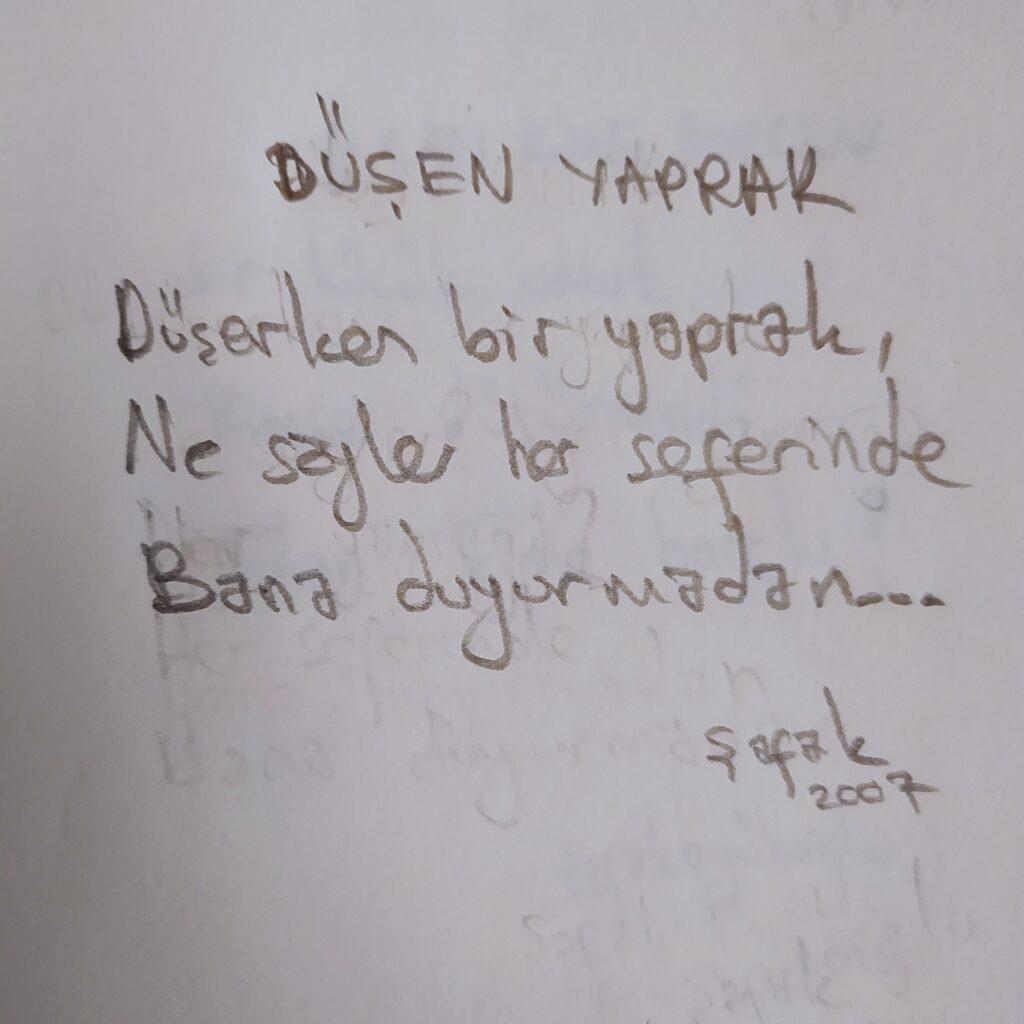 DÜŞEN YAPRAK
Düşerken bir yaprak,
Ne söyler her seferinde
Bana duyurmadan...
Şafak
2007